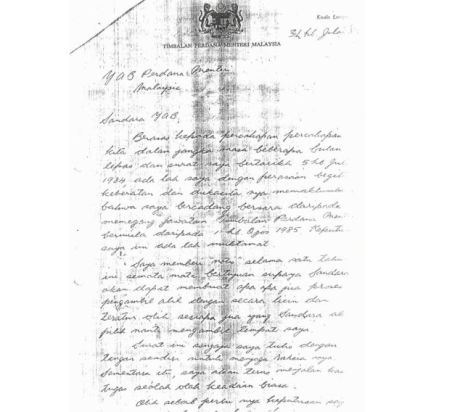 Kuala Lum
31 hb Julai
TIMBALAN PERDANA MENTERI MALAYSIA
YAB Perdana Menteri
Malaysia
Saudara YAB,
Berasas kepada percakapan percakapan
kita dalam jangka masa beberapa bulan
lepas dan surat saya bertarikh 5 hb Jul
1984 ada lah saya dengan perasaan begit
keberatan dan dukacita nya memaklumka
bahwa saya bercadang bersara daripada
memegang jawatan Timbalan Perdana Men
bermula daripada 1 hb Ogos 1985. Keputu
saya ini ada lah muktamat.
Saya memberi "notis" selama satu tahu
ini semata mata bertujuan supaya Saudara
akan dapat membuat apa apa jua proses
pengambil alih dengan secara licin dan
teratur oleh sesiapa jua yang Saudara ak
pileh nanti mengambil tempat saya.
Surat ini sengaja saya tulis dengan
tangan sendiri untuk menjaga rahsia nya
Sementara itu, saya akan terus menjalan ka
tugas seolah olah keadaan biasa.
Oleh sebab perlu nya keputusan say